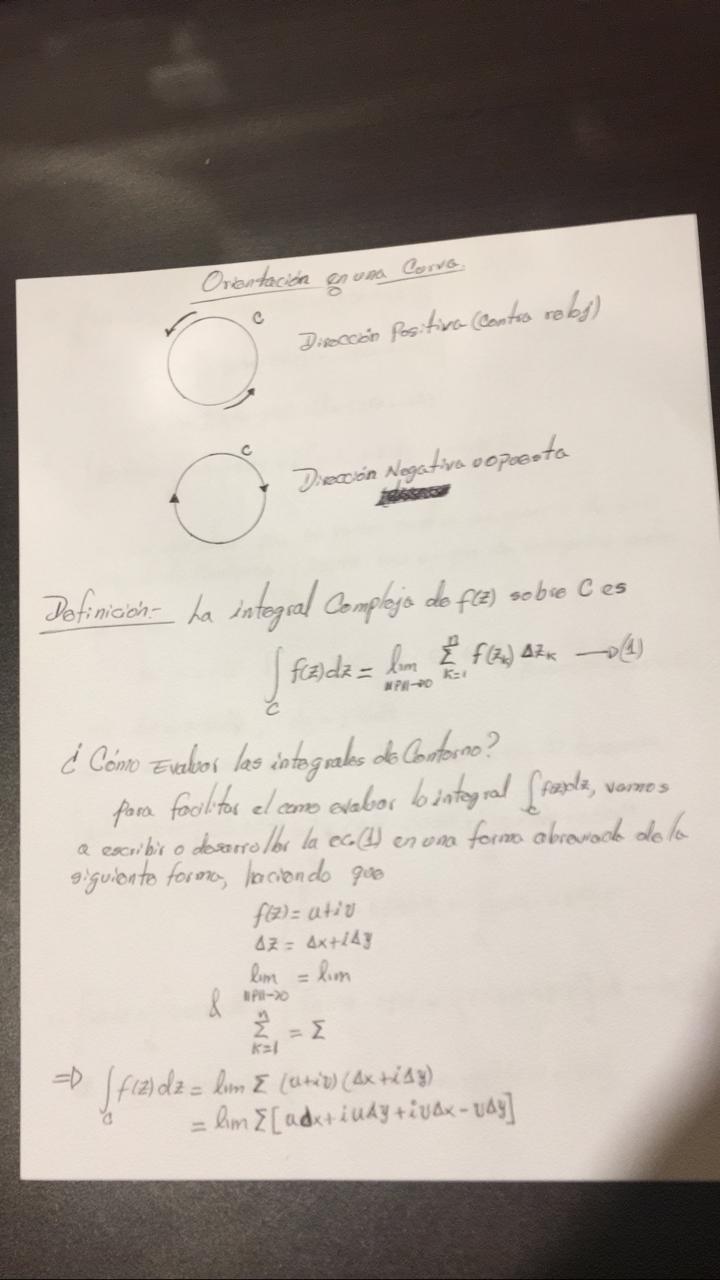 Orientación en una Curva.
C
Dirección Positiva (Contra reloj)
C
Dirección Negativa o opuesta
Definición:- La integral Compleja de f(z) sobre C es
∫_C f(z)dz = lim_{||P||→0} Σ_{k=1}^{n} f(z_k) Δz_k →(1)
¿Cómo Evaluar las integrales de Contorno?
para facilitar el como evaluar la integral ∫_C f(z)dz, vamos
a escribir o desarrollar la ec.(1) en una forma abreviada de la
siguiente forma, haciendo que
f(z) = u+iv
Δz = Δx+iΔy
lim_{||P||→0} = lim
& Σ_{k=1}^{n} = Σ
⇒ ∫_C f(z)dz = lim Σ (u+iv)(Δx+iΔy)
= lim Σ[udx+iuΔy+ivΔx-vΔy]